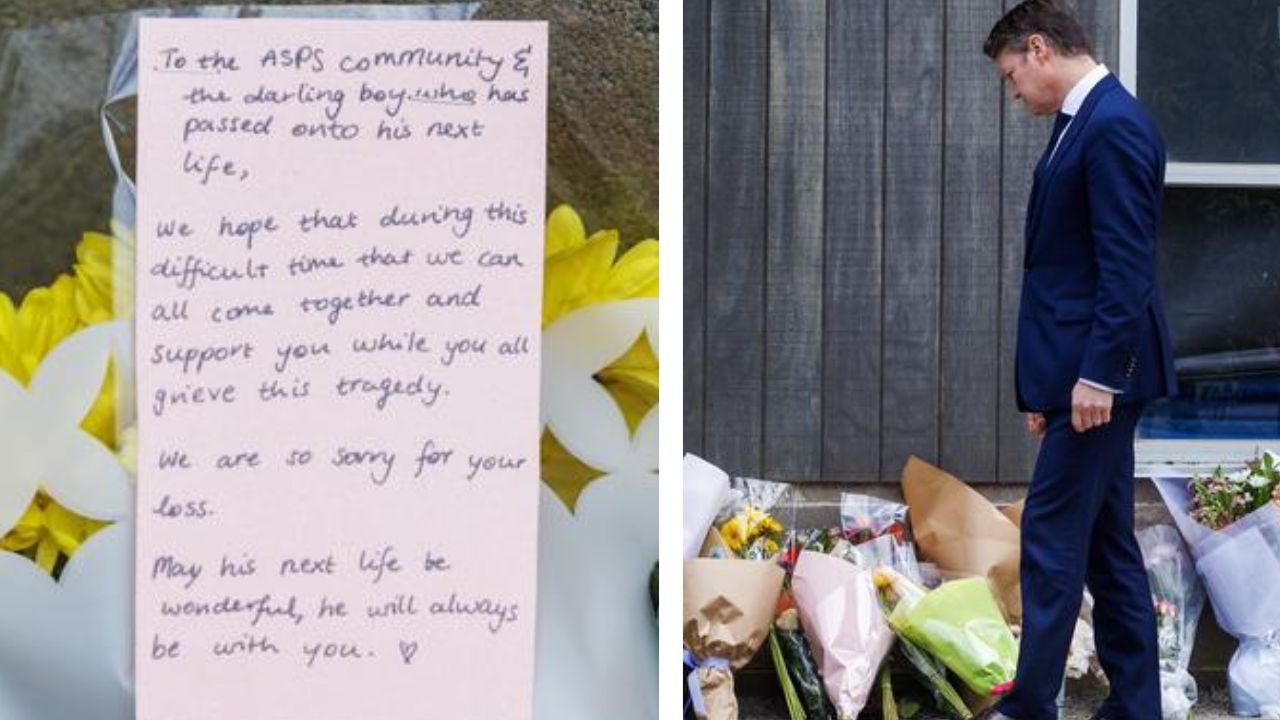 To the ASPS community &
the darling boy who has
passed onto his next
life,
We hope that during this
difficult time that we can
all come together and
support you while you all
grieve this tragedy.
We are so sorry for your
loss.
May his next life be
wonderful, he will always
be with you. ♡